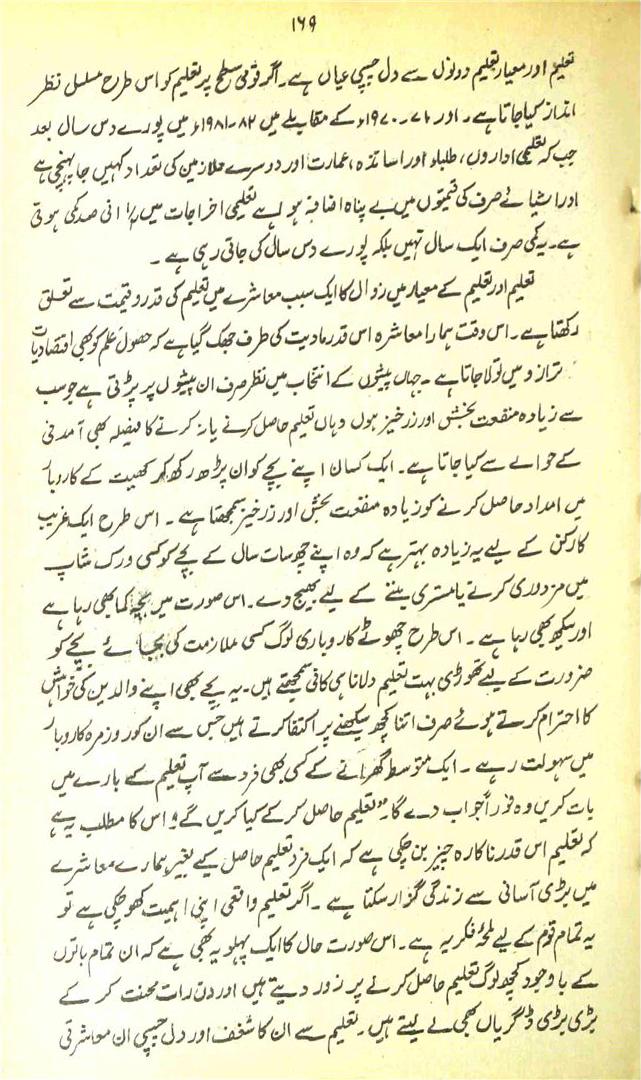 ۱۶۹
تعلیم اور معیار تعلیم دونوں سے دل چسپی عیاں ہے۔ اگر قومی سطح پر تعلیم کو اس طرح مسلسل نظر
انداز کیا جاتا ہے۔ اور ۷۱-۱۹۷۰ء کے مقابلے میں ۸۲-۱۹۸۱ء میں پورے دس سال بعد
جب کہ تعلیمی اداروں، طلباء اور اساتذہ، عمارت اور دوسرے ملازمین کی تعداد کہیں جا پہنچی ہے
اور اشیائے صرف کی قیمتوں میں بے پناہ اضافہ ہوا ہے تعلیمی اخراجات میں فی صد کمی ہوتی
ہے۔ یہ کمی صرف ایک سال نہیں بلکہ پورے دس سال کی جاتی رہی ہے۔
تعلیم اور تعلیم کے معیار میں زوال کا ایک سبب معاشرے میں تعلیم کی قدر و قیمت سے تعلق
رکھتا ہے۔ اس وقت ہمارا معاشرہ اس قدر مادیت کی طرف جھک گیا ہے کہ حصول علم کو بھی اقتصادیات
ترازو میں تولا جاتا ہے۔ جہاں پیشوں کے انتخاب میں نظر صرف ان پیشوں پر پڑتی ہے جو سب
سے زیادہ منفعت بخش اور زرخیز ہوں وہاں تعلیم حاصل کرنے یا نہ کرنے کا فیصلہ بھی آمدنی
کے حوالے سے کیا جاتا ہے۔ ایک کسان اپنے بچے کو ان پڑھ رکھ کر کھیت کے کاروبار
میں امداد حاصل کرنے کو زیادہ منفعت بخش اور زرخیز سمجھتا ہے۔ اس طرح ایک غریب
کارکن کے لیے یہ زیادہ بہتر ہے کہ وہ اپنے چھ سات سال کے بچے کو کسی ورک شاپ
میں مزدوری کرنے یا مستری بننے کے لیے بھیج دے۔ اس صورت میں بچہ کما بھی رہا ہے
اور سیکھ بھی رہا ہے۔ اس طرح چھوٹے کاروباری لوگ کسی ملازمت کی بجائے بچے کو
ضرورت کے لیے تھوڑی بہت تعلیم دلانا ہی کافی سمجھتے ہیں۔ یہ بچے بھی اپنے والدین کی خواہش
کا احترام کرتے ہوئے صرف اتنا کچھ سیکھنے پر اکتفا کرتے ہیں جس سے ان کو روزمرہ کاروبار
میں سہولت رہے۔ ایک متوسط گھرانے کے کسی بھی فرد سے آپ تعلیم کے بارے میں
بات کریں وہ فوراً جواب دے گا۔ "تعلیم حاصل کر کے کیا کریں گے؟ اس کا مطلب یہ ہے
کہ تعلیم اس قدر ناکارہ چیز بن چکی ہے کہ ایک فرد تعلیم حاصل کیے بغیر ہمارے معاشرے
میں بڑی آسانی سے زندگی گزار سکتا ہے۔ اگر تعلیم واقعی اپنی اہمیت کھو چکی ہے تو
یہ تمام قوم کے لیے لمحۂ فکریہ ہے۔ اس صورت حال کا ایک پہلو یہ بھی ہے کہ ان تمام باتوں
کے باوجود کچھ لوگ تعلیم حاصل کرنے پر زور دیتے ہیں اور دن رات محنت کر کے
بڑی بڑی ڈگریاں بھی لے لیتے ہیں۔ تعلیم سے ان کا شغف اور دل چسپی ان معاشرتی